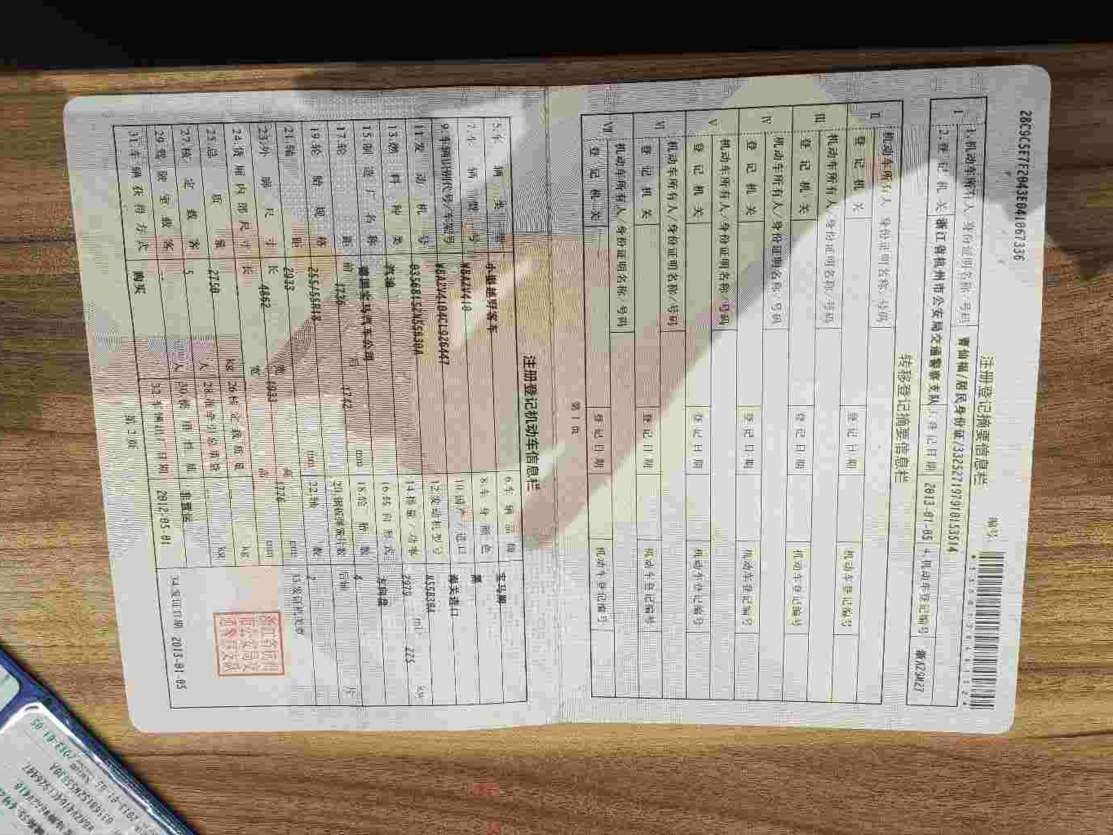 28C9C5E7E2043E041067336
注册登记摘要信息栏
编号:
Ⅰ
1.机动车所有人/身份证明名称/号码
/居民身份证/332527197910153514
2.登记机关
浙江省杭州市公安局交通警察支队
3.登记日期
2013-01-05
4.机动车登记编号
转移登记摘要信息栏
Ⅱ
机动车所有人/身份证明名称/号码
登记机关
登记日期
机动车登记编号
Ⅲ
机动车所有人/身份证明名称/号码
登记机关
登记日期
机动车登记编号
Ⅳ
机动车所有人/身份证明名称/号码
登记机关
登记日期
机动车登记编号
Ⅴ
机动车所有人/身份证明名称/号码
登记机关
登记日期
机动车登记编号
Ⅵ
机动车所有人/身份证明名称/号码
登记机关
登记日期
机动车登记编号
Ⅶ
机动车所有人/身份证明名称/号码
登记机关
登记日期
机动车登记编号
第1页
注册登记机动车信息栏
5.车辆类型
小型越野客车
6.车辆品牌
宝马牌
7.车辆型号
WBAZV410
8.车身颜色
黑
9.车辆识别代号/车架号
WBAZV4104CL926447
10.国产/进口
海关进口
11.发动机号
03568152N55B30A
12.发动机型号
N55B30A
13.燃料种类
汽油
14.排量/功率
2979 ml/ 225 kw
15.制造厂名称
德国宝马汽车公司
16.转向形式
方向盘
17.轮距
前 后 1742 mm
18.轮胎数
4
19.轮胎规格
255/55R18
20.钢板弹簧片数
后轴 片
21.轴距
2933 mm
22.轴数
2
23.外廓尺寸
长 4862 宽 1933 高 1776 mm
33.发证机关章
浙江省杭州市公安局交通警察支队
24.货厢内部尺寸
长 宽 高 mm
25.总质量
2750 kg
26.核定载质量
kg
27.核定载客
5 人
28.准牵引总质量
kg
29.驾驶室载客
人
30.使用性质
非营运
31.车辆获得方式
购买
32.车辆出厂日期
2012-05-01
34.发证日期
2013-01-05
第2页